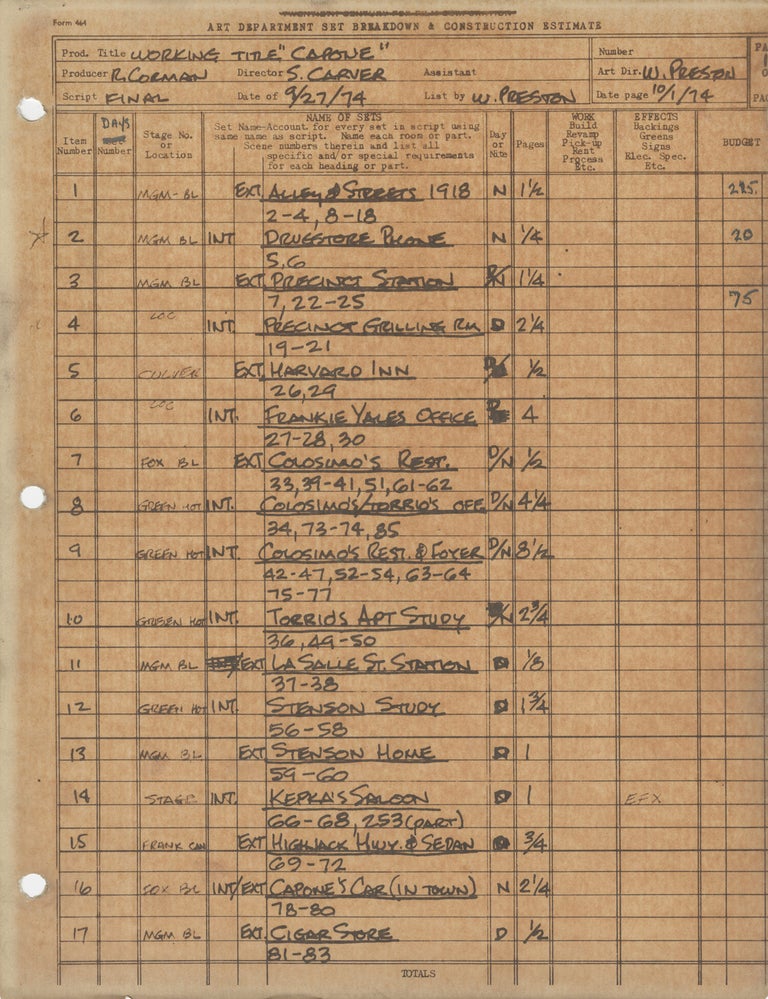 Form 464
TWENTIETH CENTURY-FOX FILM CORPORATION
ART DEPARTMENT SET BREAKDOWN & CONSTRUCTION ESTIMATE
Prod. Title WORKING TITLE "CAPONE" Number
Producer R. CORMAN Director S. CARVER Assistant Art Dir. W. PRESTON
Script FINAL Date of 9/27/74 List by W. PRESTON Date page 10/1/74
Item Number DAYS Number Stage No. or Location NAME OF SETS Day or Nite Pages WORK Build Revamp Pick-up Rent Process Etc. EFFECTS Backings Greens Signs Elec. Spec. Etc. BUDGET
Set Name-Account for every set in script using
same name as script. Name each room or part.
Scene numbers therein and list all
specific and/or special requirements
for each heading or part.
1 MGM-BL EXT ALLEY & STREETS 1918 N 1 1/2
2-4, 8-18
2 MGM BL INT DRUGSTORE PHONE N 1/4 20
5,6
3 MGM BL EXT PRECINCT STATION 1 1/4
7, 22-25 75
4 LOC INT. PRECINCT GRILLING RM D 2 1/4
19-21
5 CULVER EXT HARVARD INN 1/2
26,29
6 LOC INT. FRANKIE YALES OFFICE 4
27-28, 30
7 FOX BL EXT COLOSIMO'S REST. D/N 1/2
33,39-41,51,61-62
8 GREEN HOT INT. COLOSIMO'S/TORRIO'S OFF. D/N 4 1/4
34, 73-74, 85
9 GREEN HOT INT. COLOSIMO'S REST. & FOYER D/N 8 1/2
42-47, 52-54, 63-64
75-77
10 GREEN HOT INT. TORRIO'S APT STUDY N 2 3/4
36, 49-50
11 MGM BL EXT LA SALLE ST. STATION D 1/8
37-38
12 GREEN HOT INT. STENSON STUDY D 1 3/4
56-58
13 MGM BL EXT STENSON HOME D 1
59-60
14 STAGE INT. KEPKA'S SALOON D 1 EFX
66-68, 253 (PART)
15 FRANK CAN EXT HIGHJACK HWY. & SEDAN D 3/4
69-72
16 FOX BL INT/EXT CAPONE'S CAR (IN TOWN) N 2 1/4
78-80
17 MGM BL EXT. CIGAR STORE D 1/2
81-83
TOTALS